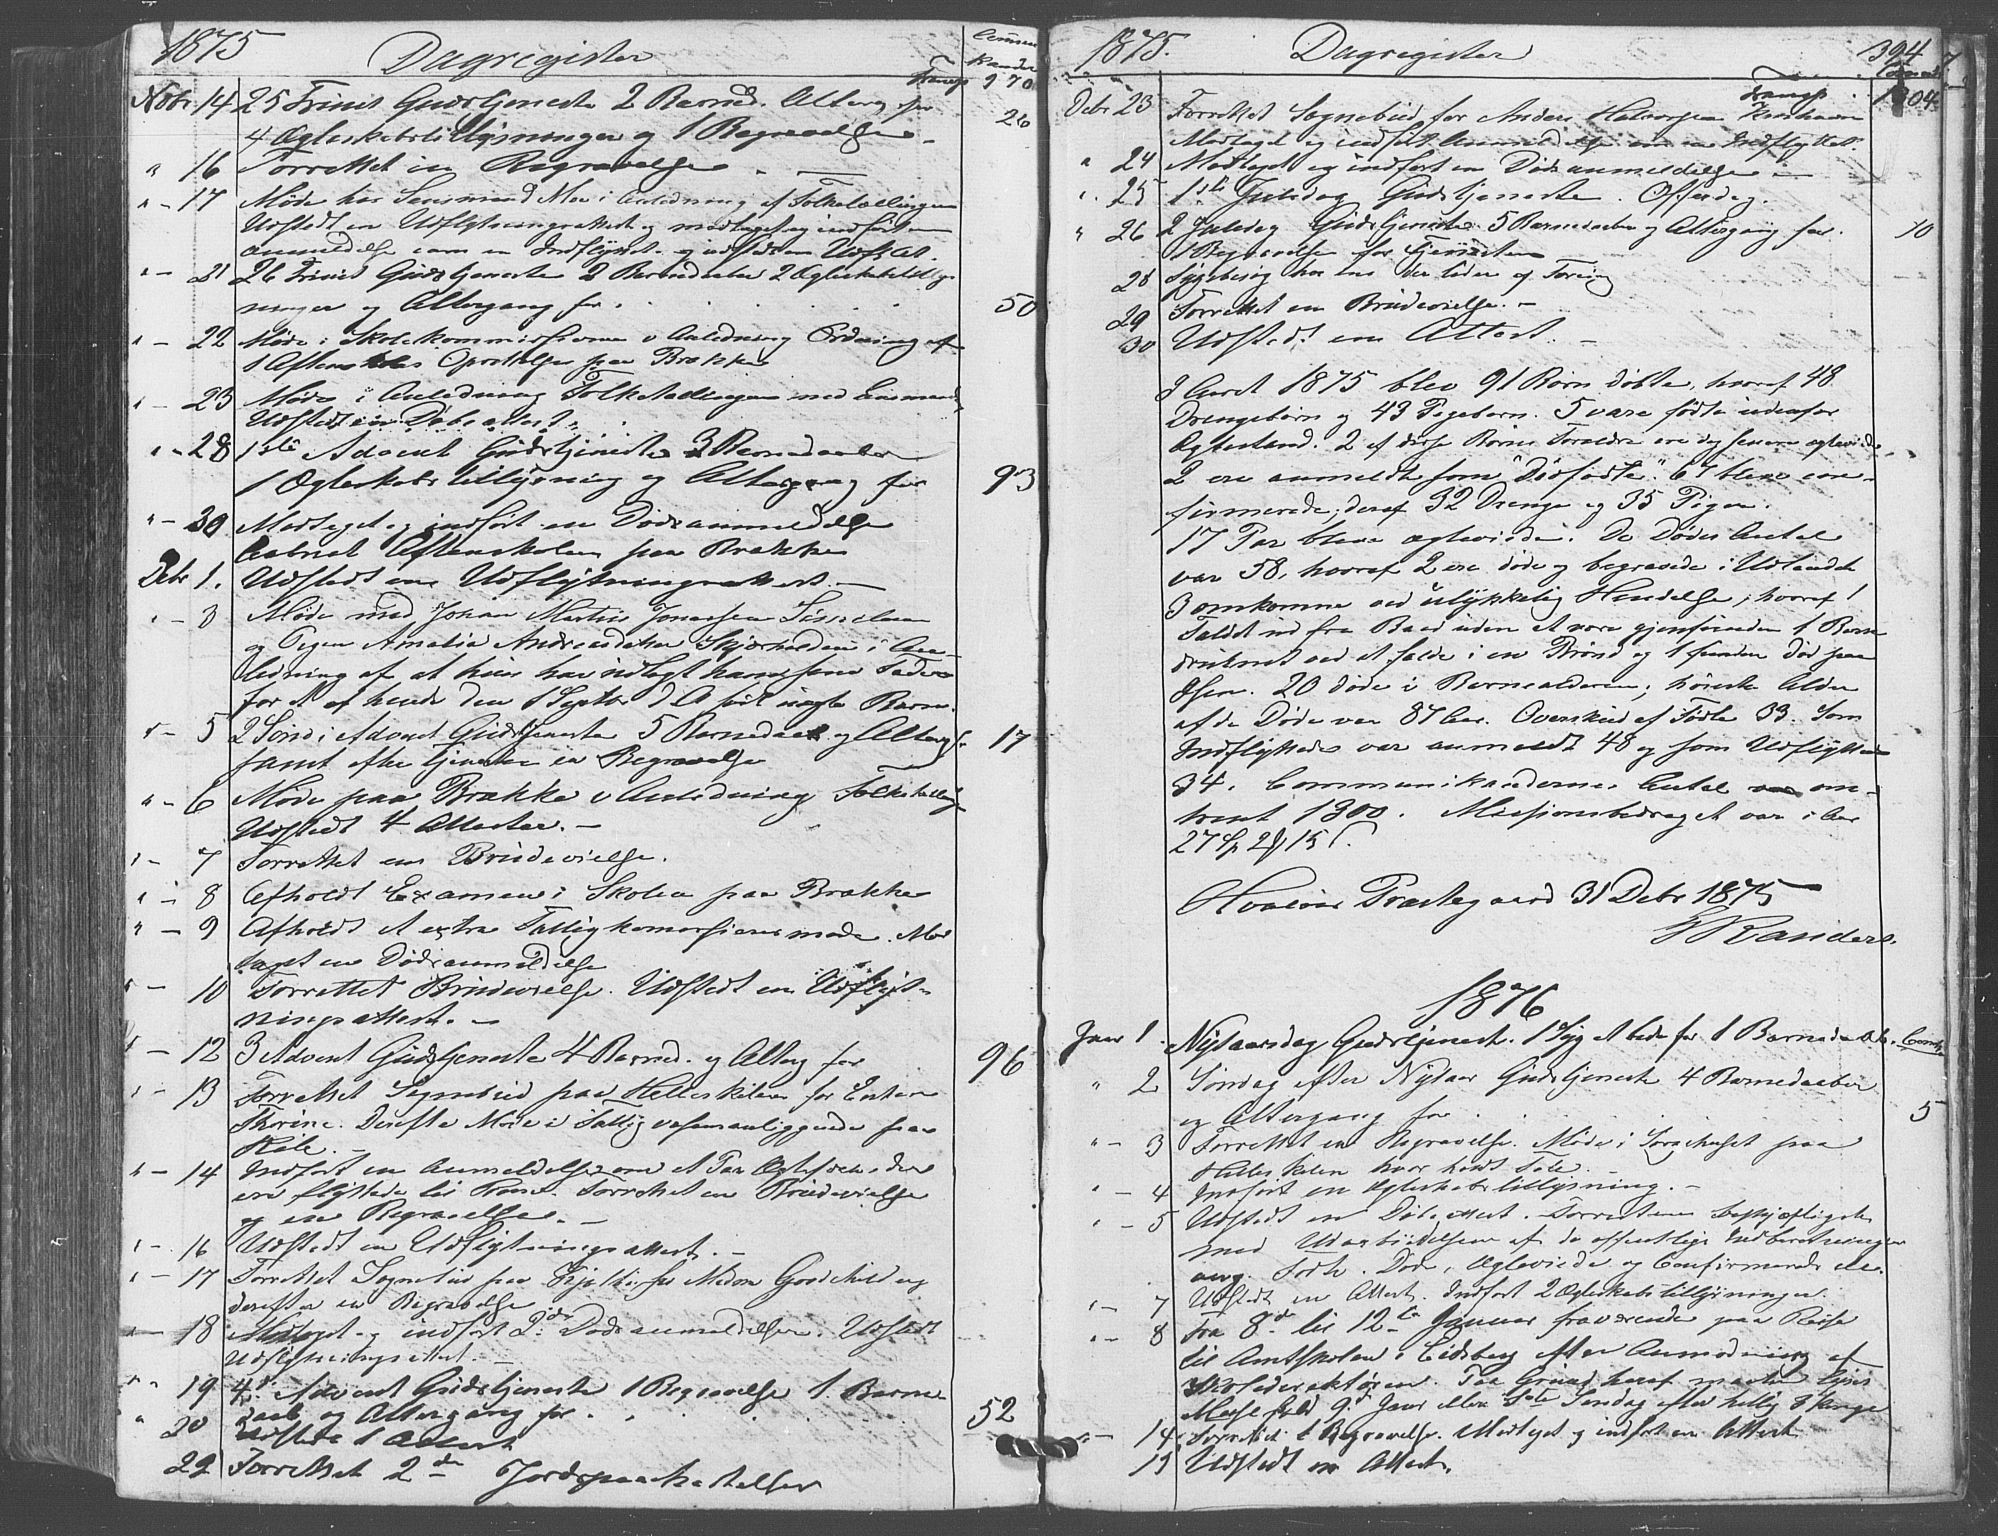 1875 Dagregister
Transp 970
Nvbr 14 25 Trinit Gudstjeneste 2 Barned. Alterg for 26
4 Ægteskabstillysninger og 1 Begravelse
" 16 Forrettet en Begravelse
" - 17 Møde hos Lensmand Moe i Anledning af Folketællingen
Udstedt en Udflytningsattest og modtaget og indført en
anmeldelse om en Indflytt. og udstedt en
" - 21 26 Trinit Gudstjeneste 2 Barnedaaber 2 Ægteskabstillys-
ninger og Altergang for 50
" - 22 Møde i Skolekommissionen i Anledning Ordning af
1 Aftenskoles Oprettelse paa Brække
" - 23 Møde i Anledning Folketællingen med Lensmand
Udstedt en Døbeattest
" - 28 1ste Advent Gudstjeneste 3 Barnedaaber
1 Ægteskabstillysning og Altergang for 93
" - 30 Modtaget og indført en Dødsanmeldelse
Aabnet Aftenskolen paa Brække
Debr 1. Udstedt en Udflytningsattest. -
" - 3 Møde med Johan Martin Jonassen
og Pigen Amalia Andreasdatter Skjærhalden i An-
ledning af at hun har udlagt ham som Fader
for et af hende den 1 Septbr d A født uægte Barn.
" - 5 2 Sønd i Advent Gudstjeneste 5 Barnedaab og Alterg f. 17
samt efter Tjenesten en Begravelse
" - 6 Møde paa Brække i Anledning Folketælling
Udstedt 4 Attester. -
" - 7 Forrettet en Brudevielse.
" - 8 Afholdt Examen i Skolen paa Brække
" - 9 Afholdt et extra Fattigkommissionsmøde. Mod
taget en Dødsanmeldelse
" - 10 Forrettet Brudevielse. Udstedt en Udflyt-
ningsattest. -
" - 12 3 Advent Gudstjeneste 4 Barned. og Alterg for 96
" - 13 Forrettet Sognebud paa Hellekilen for Enken
Thorine. Derefter Møde i Fattigvæsenanliggende paa
Kile. -
" - 14 Indført en Anmeldelse om et Par Ægtefolk, der
ere flyttede til Forrettet en Brudevielse
og en Begravelse. -
" - 16 Udstedt en Udflytningsattest. -
" - 17 Forrettet Sognebud paa for og
derefter en Begravelse
" - 18 Modtaget og indført 2de Dødsanmeldelser. Udstedt
Udflytningsattest. -
" " 19 4. Advent Gudstjeneste 1 Begravelse 1 Barne
daab og Altergang for 52
" 20 Udstedt 1 Attest
22 Forrettet 2de Jordspaakastelser
1875. Dagregister 394
Transp 1304
Debr 23 Forrettet Sognebud for Anders Halvorsen
Modtaget og indført Anmeldelse om en Indflyttet.
" 24 Modtaget og indført en Dødsanmeldelse
" 25 1ste Juledag Gudstjeneste. Offerdag.
" 26 2 Juledag Gudstjeneste 5 Barnedaaber og Altergang for 10
1 Begravelse før Tjenesten
28 Sygebesøg hos der lider af Tæring
29 Forrettet en Brudevielse. -
30 Udstedt en Attest. -
I Aaret 1875 blev 91 Børn døbte, hvoraf 48
Drengebørn og 43 Pigebørn. 5 vare fødte udenfor
Ægteskab. 2 af disse Børns Forældre ere dog senere ægteviede.
2 ere anmeldt som "Dødfødte". 67 bleve con-
firmerede, deraf 32 Drenge og 35 Piger.
17 Par bleve ægteviede. De Dødes Antal
var 58, hvoraf 2 ere døde og begravede i Udlandet
3 omkomne ved ulykkelig Hændelse, hvoraf 1
faldt ud fra Baad uden at være gjenfunden 1 Barn
druknet ved at falde i en Brønd og 1 funden død paa
Isen. 20 døde i Barnealderen, høieste Alder
af de Døde var 87 Aar. Overskud af Fødte 33. Som
Indflyttede var anmeldt 48 og som Udflyttede
34. Communikanternes Antal var om-
trent 1300. Missionsbidraget var i Aar
27 Sp 2 15 s.
Hvaløer Præstegaard 31 Debr 1875
Randers.
1876
Janr 1. Nytaarsdag Gudstjeneste. 1 Syg at bede for 1 Barnedaab. Comk.
" 2 Søndag efter Nytaar Gudstjeneste 4 Barnedaaber
og Altergang for 5
" - 3 Forrettet en Begravelse. Møde i Forehuset paa
Hellekilen hvor holdt Tale. -
" - 4 Indført en Ægteskabstillysning. -
" - 5 Udstedt en Døbeattest. Forresten beskjæftiget
med Udarbeidelsen af de offentlige Indberetninger
ang. Fødte. Døde, Ægteviede og Confirmerede etc.
" - 7 Udstedt en Attest. Indført 2 Ægteskabstillysninger.
" - 8 Fra 8de til 12te Januar fraværende paa Reise
til Amtskolen i Eidsberg efter Anmodning af
Skoledirektøren. Paa Grund heraf maatte
Messefald 9de Janr eller 1ste Søndag efter hellig 3 Konger
" - 14 Forrettet 1 Begravelse. Modtaget og indført en Attest
15 Udstedt en Attest.